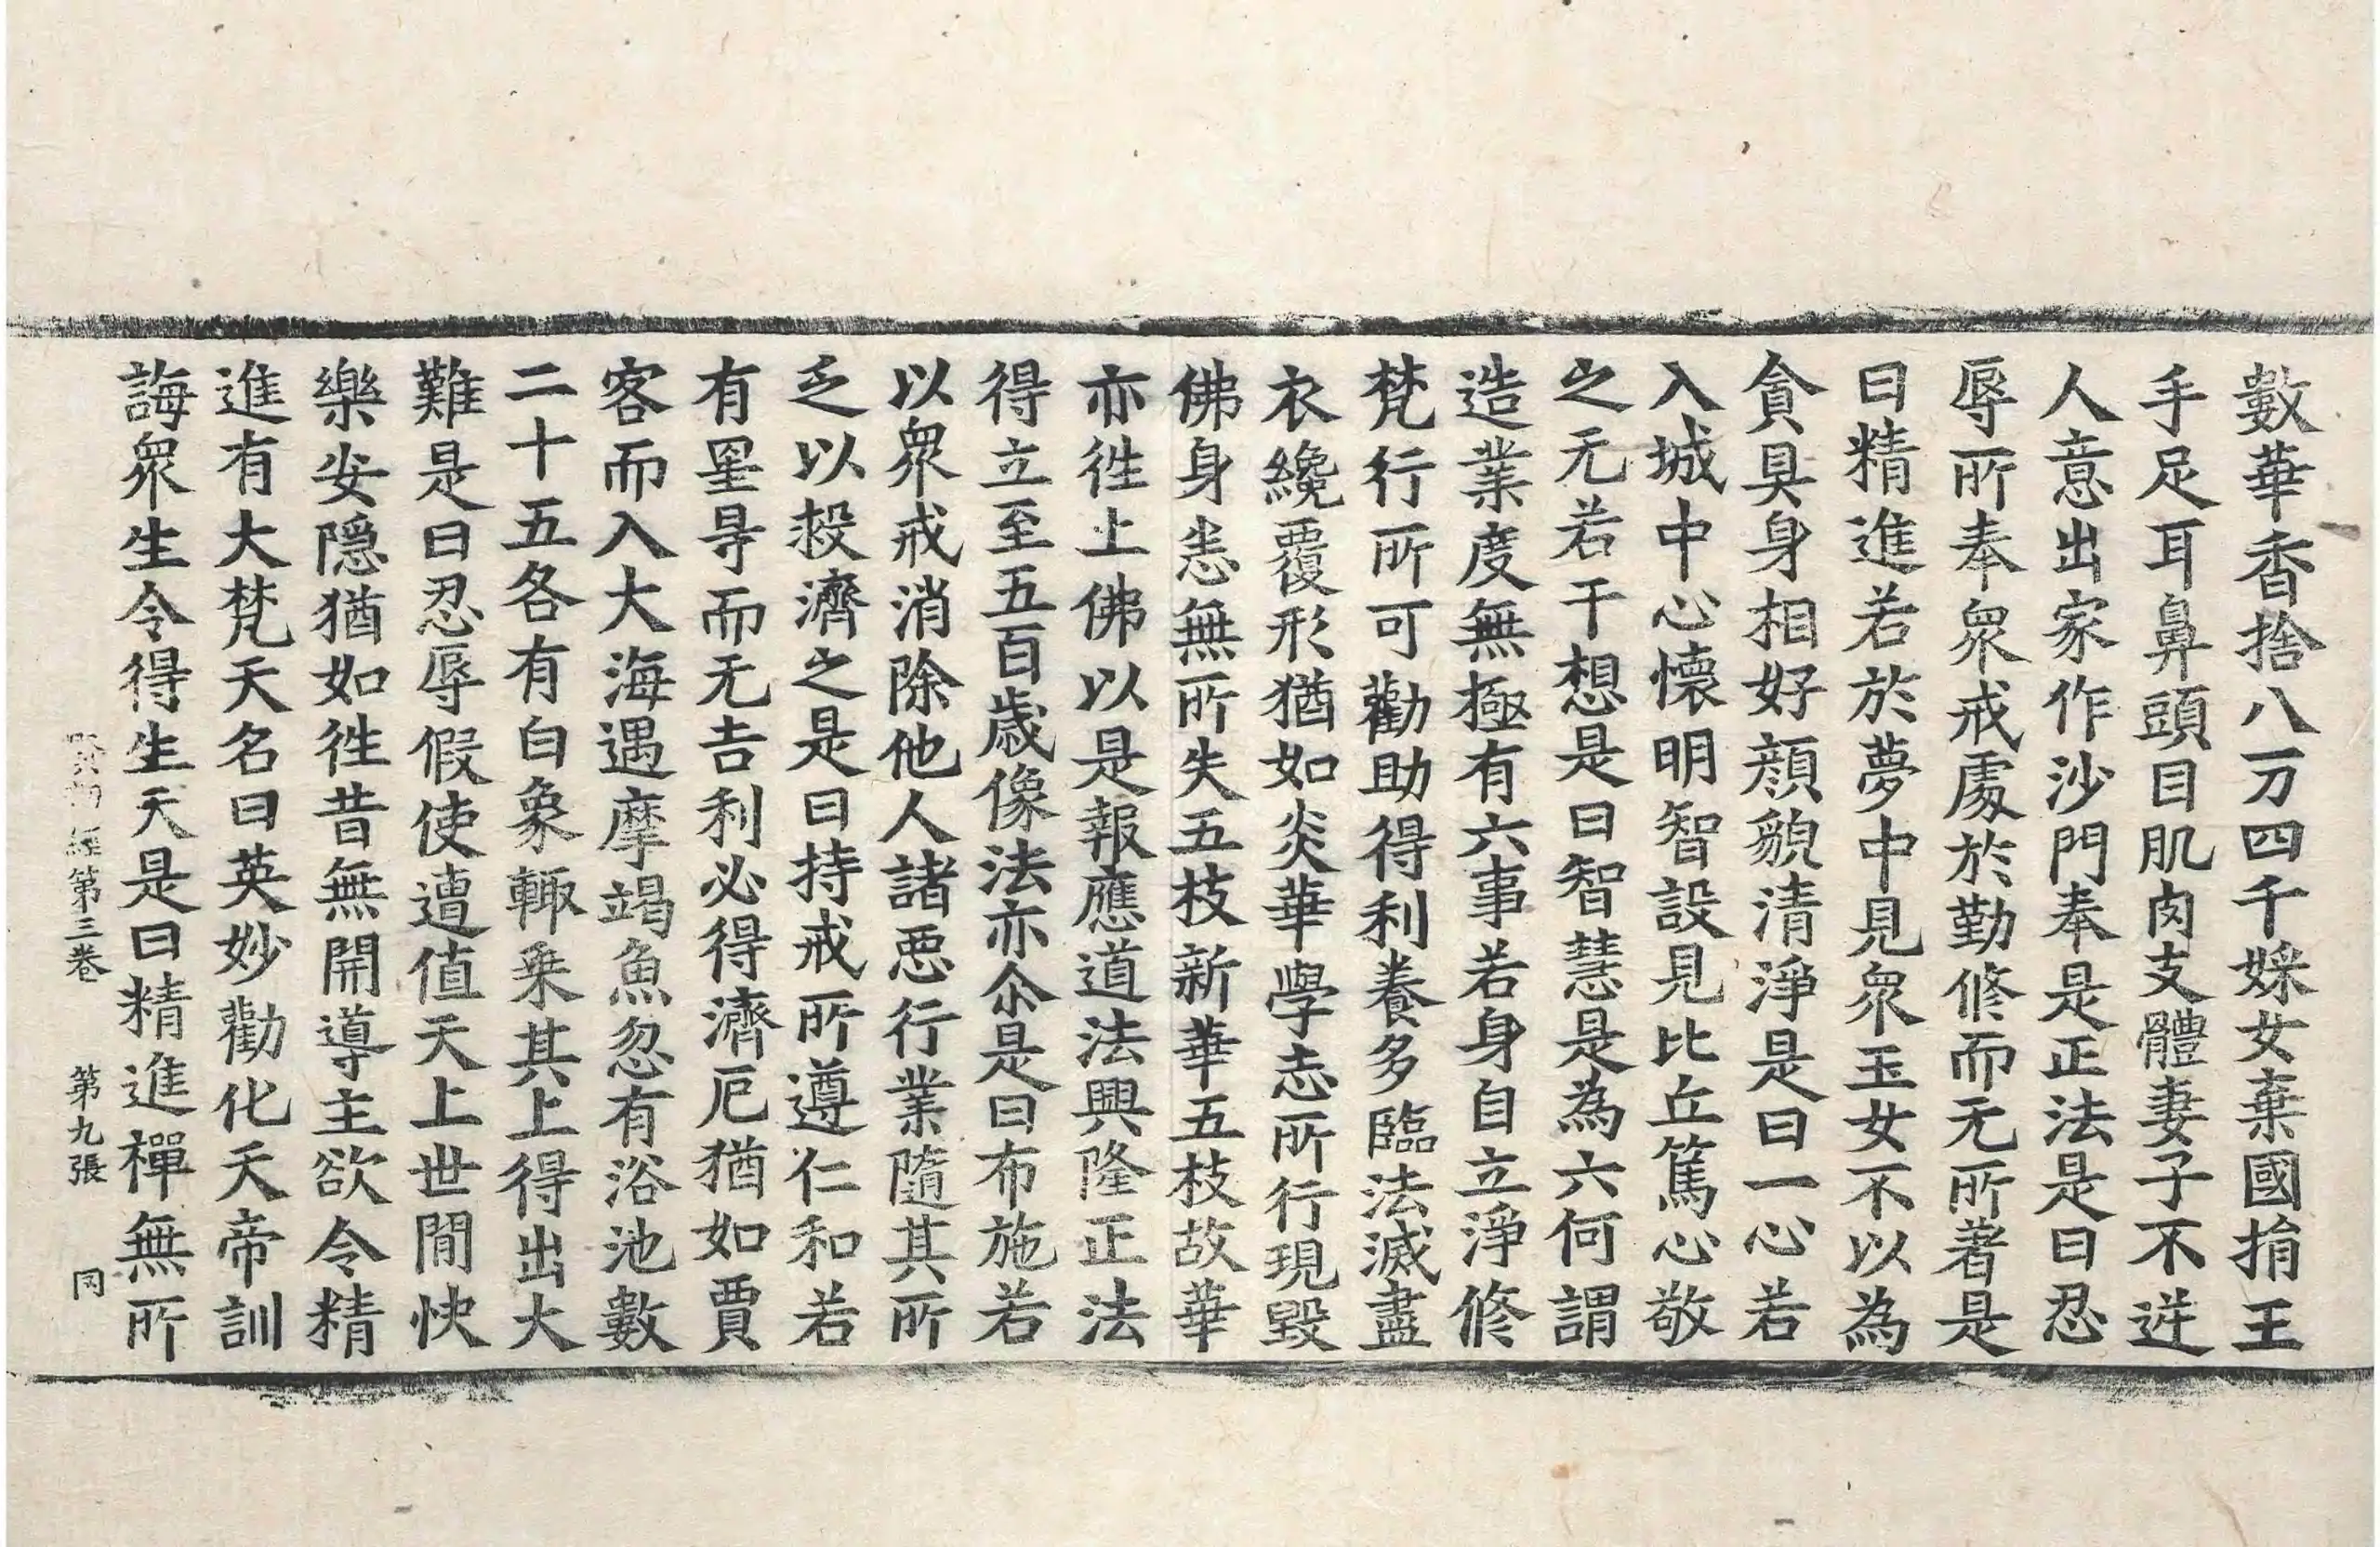 數華香捨八万四千婇女棄國捐王
手足耳鼻頭目肌肉支體妻子不逆
人意出家作沙門奉是正法是曰忍
辱所奉衆戒處於勤修而无所著是
曰精進若於夢中見衆玉女不以為
貪具身相好顔貌清淨是曰一心若
入城中心懷明智設見比丘篤心敬
之无若干想是曰智慧是為六何謂
造業度無極有六事若身自立淨修
梵行所可勸助得利養多臨法滅盡
衣纔覆形猶如炎華學志所行現毀
佛身恙無所失五枝新華五枝故華
亦徃上佛以是報應道法興隆正法
得立至五百歳像法亦尒是曰布施若
以衆戒消除他人諸惡行業隨其所
乏以投濟之是曰持戒所遵仁和若
有罣㝵而无吉利必得濟厄猶如賈
客而入大海遇摩竭魚忽有浴池數
二十五各有白象輙乗其上得出大
難是曰忍辱假使遭值天上世閒快
樂安隱猶如徃昔無開導主欲令精
進有大梵天名曰英妙勸化天帝訓
誨衆生令得生天是曰精進禪無所
經第三卷 第九張 同